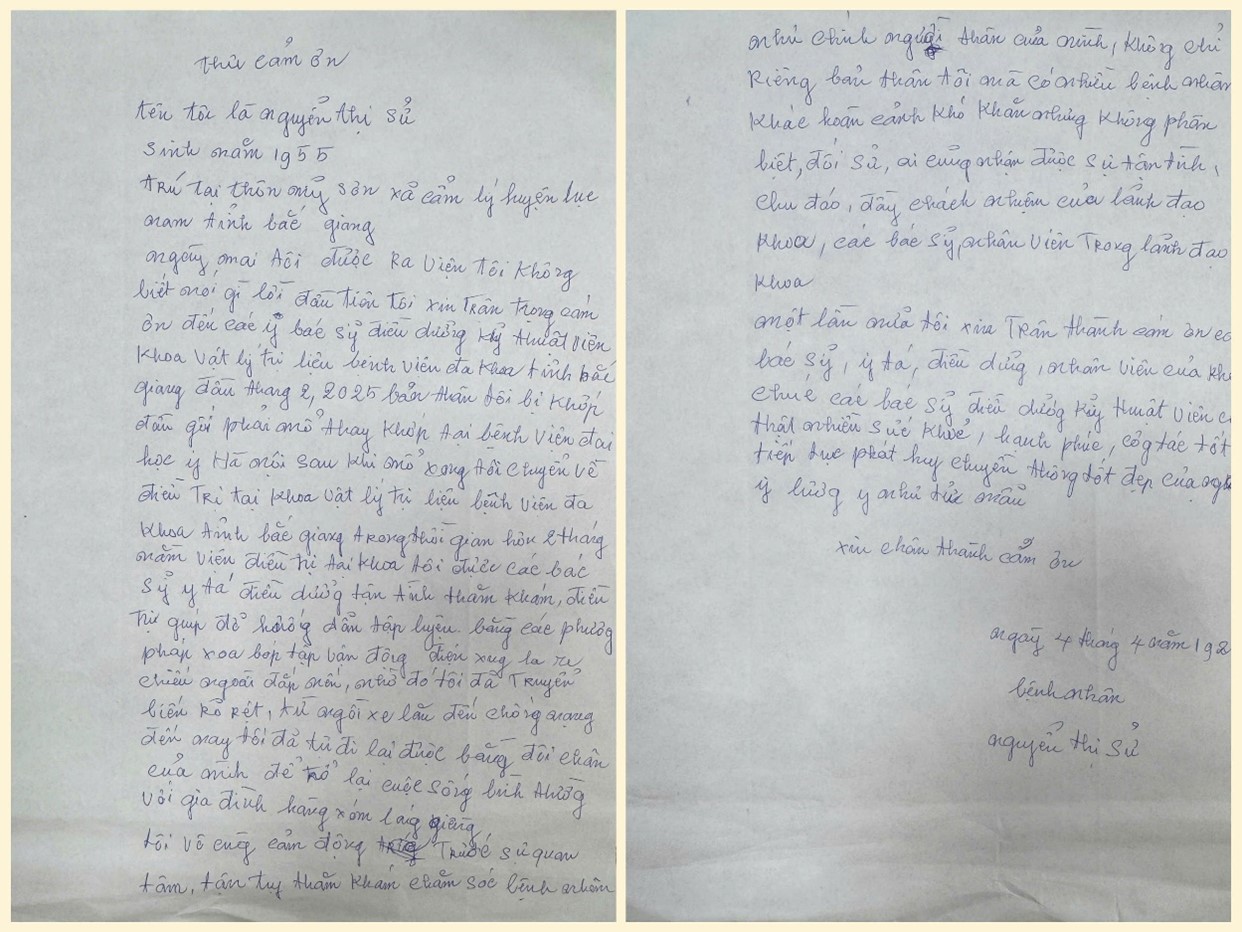 thư cảm ơn
tên tôi là nguyễn thị sử
sinh năm 1955
trú tại thôn mỹ sơn xã cẩm lý huyện lục
nam tỉnh bắc giang
ngày mai tôi được ra viện tôi không
biết nói gì lời đầu tiên tôi xin trân trọng cảm
ơn đến các y bác sỹ điều dưỡng kỹ thuật viên
khoa vật lý trị liệu bệnh viện đa khoa tỉnh bắc
giang đầu tháng 2, 2025 bản thân tôi bị khớp
đầu gối phải mổ thay khớp tại bệnh viện đại
học y Hà nội sau khi mổ xong tôi chuyển về
điều trị tại khoa vật lý trị liệu bệnh viện đa
khoa tỉnh bắc giang trong thời gian hơn 2 tháng
nằm viện điều trị tại khoa tôi được các bác
sỹ y tá điều dưỡng tận tình thăm khám, điều
trị giúp đỡ hướng dẫn tập luyện bằng các phương
pháp xoa bóp tập vận động điện xung la ze
chiếu ngoài đắp nến, nhờ đó tôi đã truyển
biến rõ rệt, từ ngồi xe lăn đến chống nạng
đến nay tôi đã tự đi lại được bằng đôi chân
của mình để trở lại cuộc sống bình thường
với gia đình hàng xóm láng giềng
tôi vô cùng cảm động trước sự quan
tâm, tận tụy thăm khám chăm sóc bệnh nhân
như chính người thân của mình, không chỉ
Riêng bản thân tôi mà có nhiều bệnh nhân
khác hoàn cảnh khó khăn nhưng không phân
biệt, đối sử, ai cũng nhận được sự tận tình,
chu đáo, đầy chách nhiệm của lãnh đạo
khoa, các bác sỹ, nhân viên trong lãnh đạo
khoa
một lần nữa tôi xin trân thành cảm ơn
bác sỹ, y tá, điều dưỡng, nhân viên của
chúc các bác sỹ điều dưỡng kỹ thuật viên
thật nhiều sức khỏe, hạnh phúc, công tác tốt
tiếp tục phát huy chuyền thống tốt đẹp của
y lương y như từ mẫu
xin chân thành cảm ơn
ngày 4 tháng 4 năm 192
bệnh nhân
nguyễn thị sử